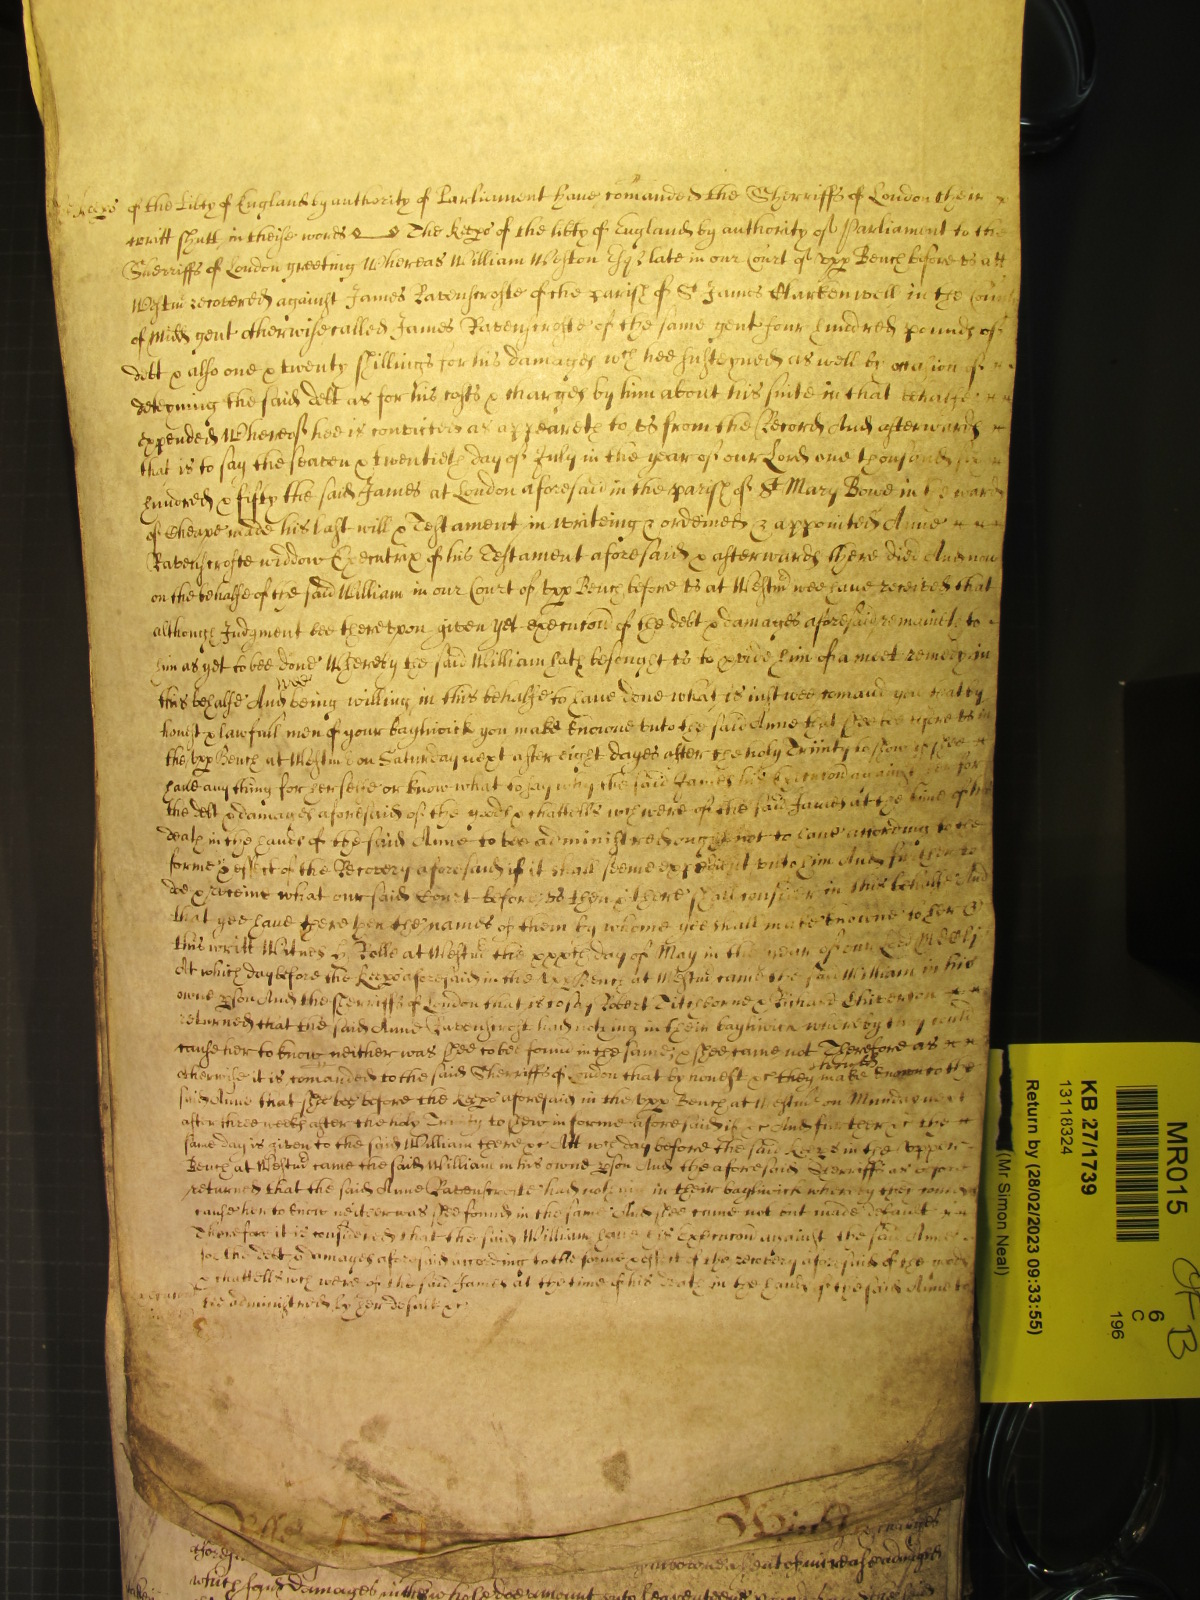 of the Libty of England by authority of Parliament have comanded the Sherriffs of London their
writt shutt in theise words The Keeps of the libty of England by authority of Parliament to the
Sherriffs of London greeting Whereas William Weston Esq late in our Court of upp Bench before us att
Westm recovered against James Ravenscrofte of the parish of St James Clarkenwell in the County
of Midd gent otherwise called James Ravenscrofte of the same gent four hundred pounds of
debt & also one & twenty shillings for his damages wch hee susteyned as well by occasion of
deteyning the said debt as for his costs & charges by him about his suite in that behalfe
expended Whereof hee is convicted as appeareth to us from the Record And afterwards
that is to say the seaven & twentieth day of July in the year of our Lord one thousand six
hundred & fifty the said James at London aforesaid in the parish of St Mary Bowe in the ward
of Cheape made his last will & Testament in writeing & ordeined & appointed Anne
Ravenscrofte widdow Executrix of his Testament aforesaid & afterwards there died And now
on the behalfe of the said William in our Court of upp Bench before us at Westm wee have received that
although Judgment bee thereupon given yet execucon of the debt & damages aforesaid remaineth to
him as yet to bee done Whereby the said William hath besought us to pvide him of a meet remedy in
this behalfe And wee being willing in this behalfe to have done what is just wee comand you that by
honest & lawfull men of your baylywick you make knowne unto the said Anne that shee bee before us in
the upp Bench at Westm on Saturday next after eight dayes after the holy Trinity to shew if shee
have any thing for her selfe or know what to say why the said James his Execucon against her for
the debt & damages aforesaid of the goods & chattells wch were of the said James at the time of his
death in the hands of the said Anne to bee administred ought not to have according to the
forme & effect of the Recovery aforesaid if it shall seeme expedient unto him And further to
doe & receive what our said Court before us then & there shall consider in this behalfe And
that yee have there then the names of them by whome yee shall make knowne to her &
this writt Witnes H Rolle at Westm the xxxth day of May in the year of our Lord MDCLI
At which day before the Keeps aforesaid in the Upp Bench at Westm came the said William in his
owne pson And the Sherriffs of London that is to say Robert Titcheborne & Richard Chiverton
returned that the said Anne Ravenscroft had nothing in their baylywick whereby they could
cause her to know neither was shee to bee found in the same & shee came not Therefore as
otherwise it is comanded to the said Sherriffs of London that by honest &c they make knowne to the
said Anne that shee bee before the Keeps aforesaid in the upp Bench at Westm on Munday next
after three weeks after the holy Trinity to shew in forme aforesaid if &c And further &c the
same day is given to the said William there &c Att wch day before the said Keeps in the upper
Bench at Westm came the said William in his owne pson And the aforesaid Sherriffs as before
returned that the said Anne Ravenscrofte had nothing in their baylywick whereby they could
cause her to know neither was shee found in the same And shee came not but made default
Therefore it is considered that the said William have his Execucon against the said Anne
for the debt & damages aforesaid according to the forme & effect of the recovery aforesaid of the goods
& chattells wch were of the said James at the time of his death in the hands of the said Anne to
bee administred by her default &c
which said damages in the whole doe amount unto
MR015
KB 27/1739
13118324
Return by (28/02/2023 09:33:55)
(Mr Simon Neal)
6
C
196